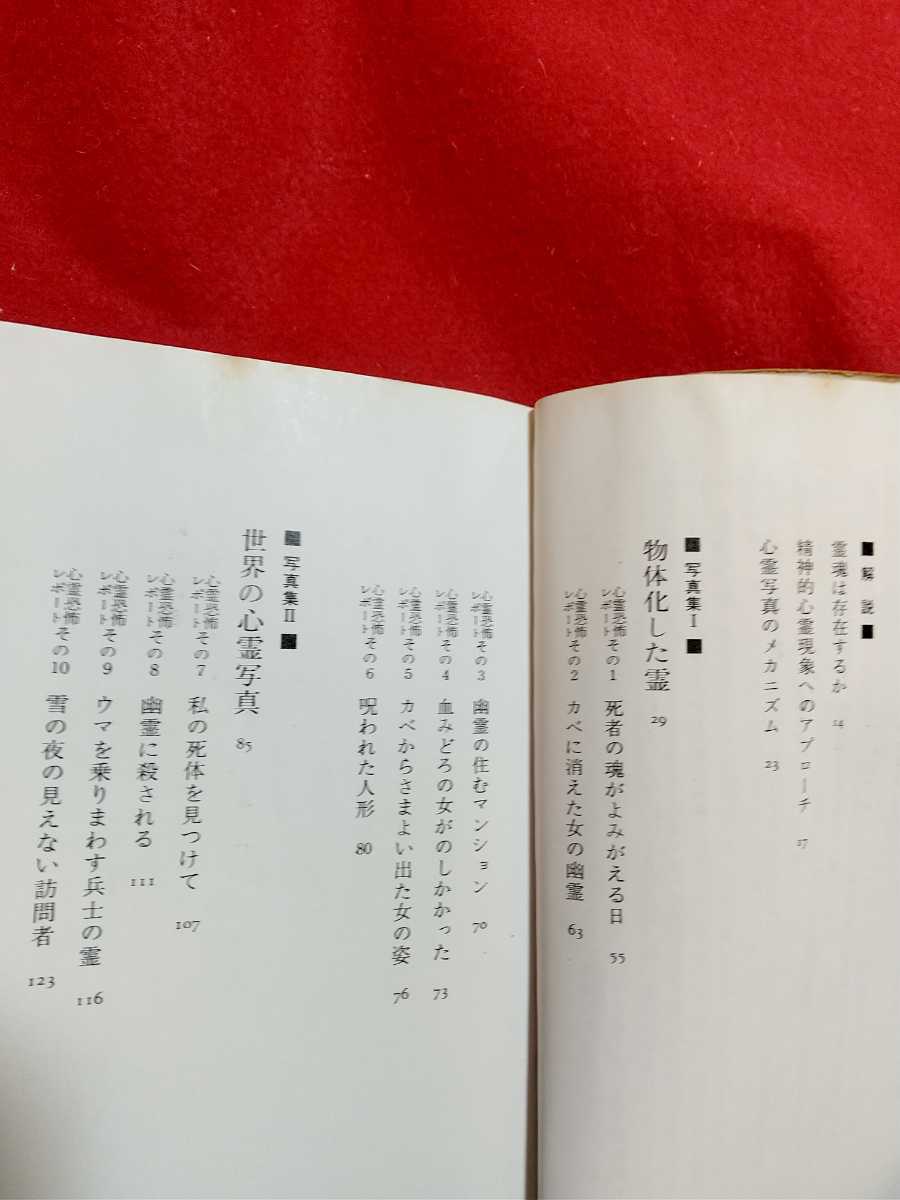 ■解説■
霊魂は存在するか 14
精神的心霊現象へのアプローチ 17
心霊写真のメカニズム 23
■写真集Ⅰ■
物体化した霊 29
心霊恐怖レポート その1 死者の魂がよみがえる日 55
心霊恐怖レポート その2 カベに消えた女の幽霊 63
心霊恐怖レポート その3 幽霊の住むマンション 70
心霊恐怖レポート その4 血みどろの女がのしかかった 73
心霊恐怖レポート その5 カベからさまよい出た女の姿 76
心霊恐怖レポート その6 呪われた人形 80
■写真集Ⅱ■
世界の心霊写真 85
心霊恐怖レポート その7 私の死体を見つけて 107
心霊恐怖レポート その8 幽霊に殺される 111
心霊恐怖レポート その9 ウマを乗りまわす兵士の霊 116
心霊恐怖レポート その10 雪の夜の見えない訪問者 123